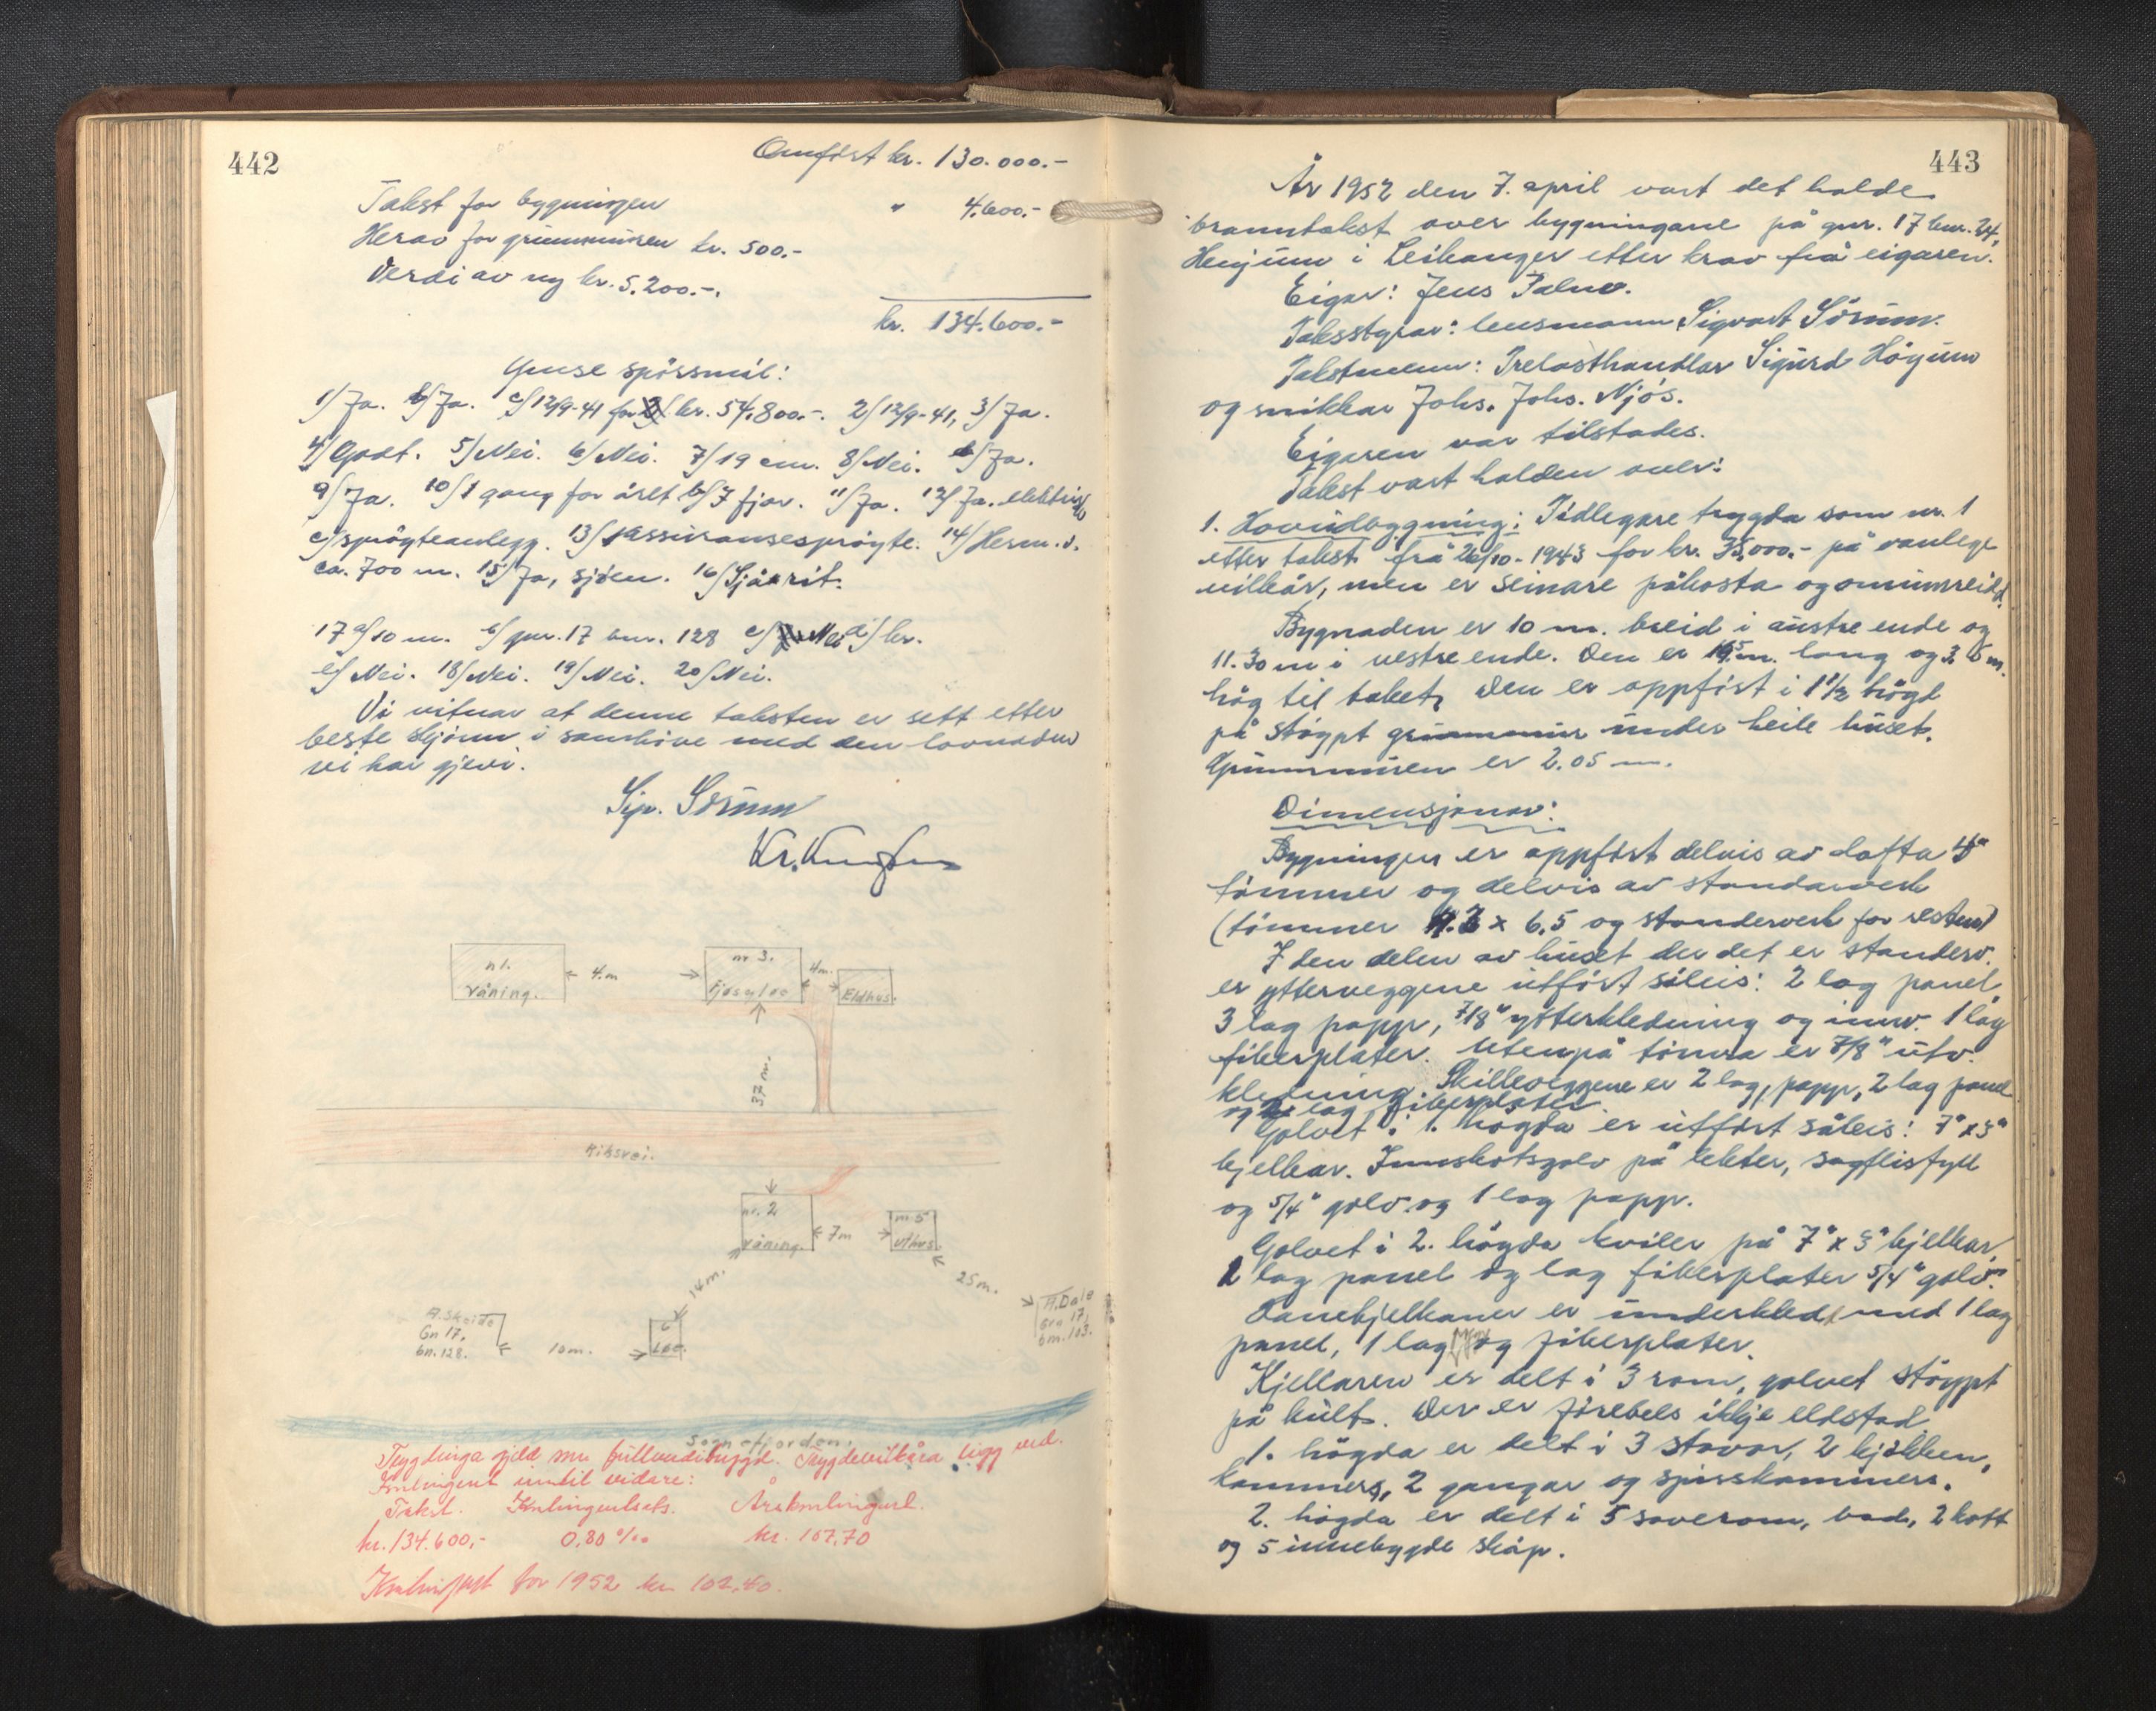 442
Omført kr. 130.000.-
Takst for bygningen " 4.600.-
Herav for grunnmuren kr. 500.-
Verdi av ny kr. 5.200.-.
kr. 134.600.-
Ymse spörsmål:
1/ Ja. b/ Ja. c/ 12/9-41 for kr. 54.800.-. 2/ 12/9-41, 3/ Ja.
4/ Godt. 5/ Nei. 6/ Nei. 7/ 19 cm. 8/ Nei. b/ Ja.
9/ Ja. 10/ 1 gong for året b/ 7 fjor. 11/ Ja. 12/ Ja. elektrisk
c/ spröyteanlegg. 13/ Assuransesprøyte. 14/ Herm.s.
ca. 700 m. 15/ Ja, sjøen. 16/ Sjå rit.
17 a/ 10 m. b/ gnr. 17 bnr. 128 c/ Nei d/ kr.
e/ Nei. 18/ Nei. 19/ Nei. 20/ Nei.
Vi vitnar at denne taksten er sett etter
beste skjönn i samhöve med den lovnaden
vi har gjevi.
Sigv. Sörum
nr 1.
våning.
4.m
nr 3.
Fjös og löe
4m.
Eldhus.
37 m.
Riksvei.
nr. 2
våning.
7m
nr 5
Uthus.
14 m.
25 m.
A. Skeide
Gn 17.
bn. 128.
10 m.
Löe.
A. Dale
Grn 17,
bm. 113.
Sognefjorden.
Trygdinga gjeld som fullverditrygd. Trygdevilkåra ligg ved.
Kontingent inntil vidare:
Takst. Kontingentsats. Årskontingent.
kr. 134.600,- 0,80 ‰ kr. 107,70
Kontingent for 1952 kr 102,40.
443
År 1952 den 7. april vart det halde
branntakst over bygningane på gnr. 17 bnr. 24,
Henjum i Leikanger etter krav frå eigaren.
Eigar: Jens Palme.
Taksstyrar: lensmann Sigvart Sörum.
Takstmenn: Trelasthandlar Sigurd Höyum
og snikkar Johs. Johs. Njös.
Eigaren var tilstades.
Takst vart halden over:
1. Hovudbygning: Tidlegare trygda som nr. 1
etter takst frå 26/10-1943 for kr. 35,000.- på vanlege
vilkår, men er seinare påkosta og ominnreidd.
Bygnaden er 10 m. breid i austre ende og
11.30 m i vestre ende. Den er m. lang og m.
høg til taket, den er oppført i 1 1/2 högd
på stöypt grunnmur under heile huset.
Grunnmuren er 2.05 m.
Dimensjonar:
Bygningen er oppført delvis av lafta 4"
tömmer og delvis av standarverk
(tömmer x 6,5 og standerverk for resten)
I den delen av huset der det er standerv.
er ytterveggene utfört såleis: 2 lag panel,
3 lag papp, 7/8" ytterkledning og innv. 1 lag
fiberplater. Utenpå tömra er 7/8" utv.
kledning. Skilleveggene er 2 lag papp, 2 lag panel
og 2 lag fiberplater.
Golvet i 1. högda er utfört såleis: 7" x 3"
bjelkar. Innskotsgolv på lekter, sagflisfyll
og 5/4" golv og 1 lag papp.
Golvet i 2. högda kviler på 7" x 3" bjelkar,
1 lag panel og lag fiberplater 5/4" golv.
Hanebjelkaner er underkledd med 1 lag
panel, 1 lag papp og fiberplater.
Kjellaren er delt i 3 rom, golvet stöypt
på kult. Der er förebels ikkje eldstad.
1. högda er delt i 3 stover, 2 kjökken,
kammers, 2 gangar og spisskammers.
2. högda er delt i 5 soverom, bad, 2 kott
og 5 innebygde skåp.